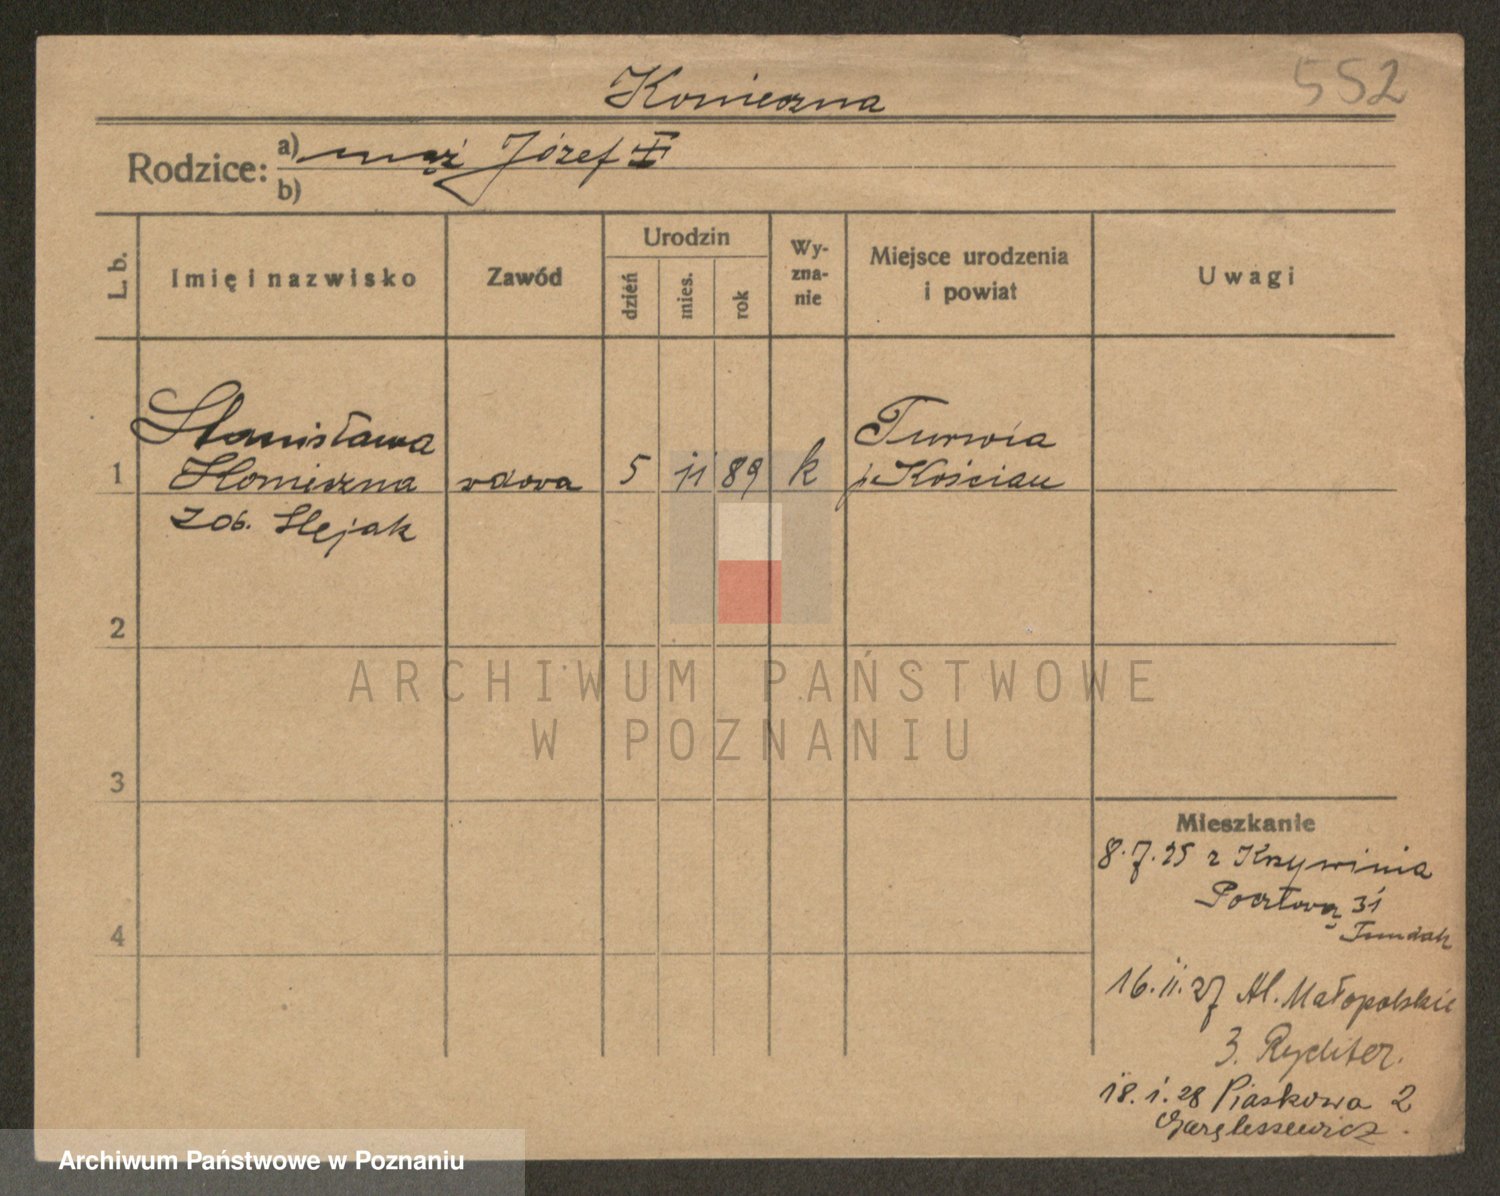 552
Konieczna
Rodzice:
a) mąż Józef
b)
L. b.
Imię i nazwisko
Zawód
Urodzin
dzień
mies.
rok
Wy-
zna-
nie
Miejsce urodzenia
i powiat
Uwagi
Stanisława
1 Konieczna wdowa 5 11 89 k
zob. Slejak
Turwia
p. Kościan
2
3
4
ARCHIWUM PAŃSTWOWE
W POZNANIU
Mieszkanie
8.7.25 z Krzywinia
Pocztowa 31
16.11.27 Al. Małopolskie
3.
18.1.28 Piaskowa 2
Archiwum Państwowe w Poznaniu